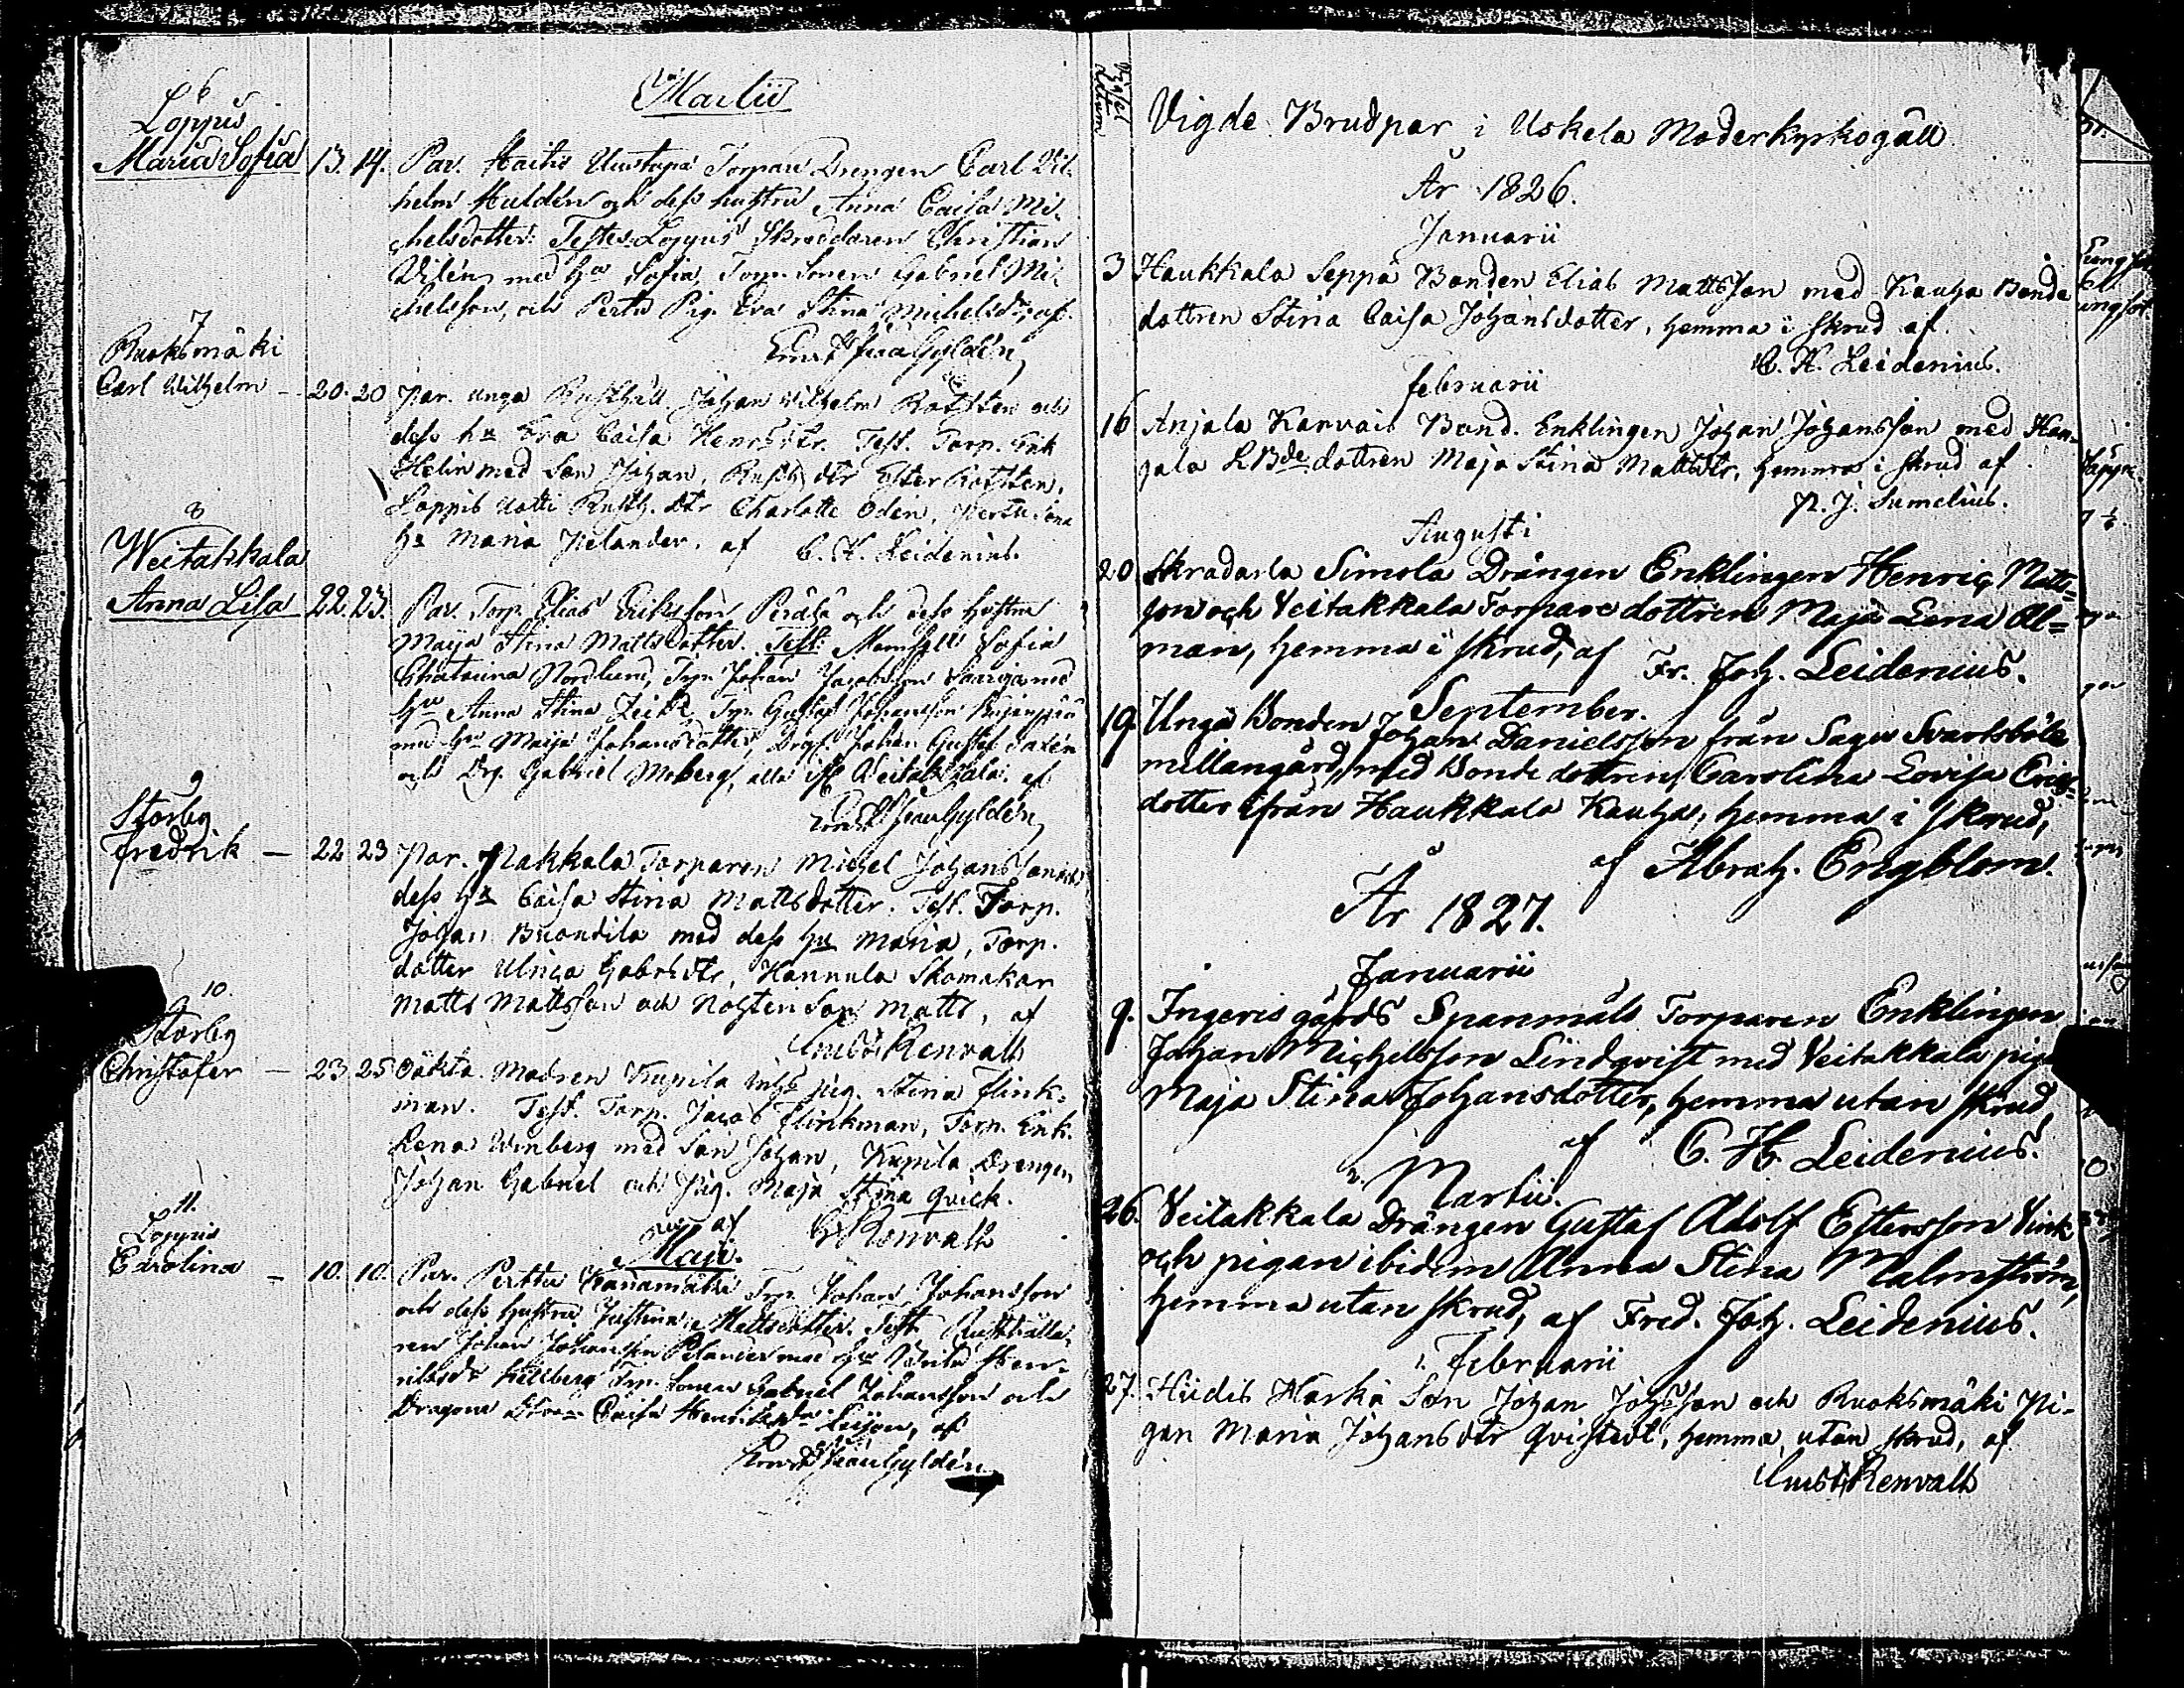 Martii
6
Loppis
Maria Sofia 13. 14. Par. Haitis Uustupa Torpare Drengen Carl Vil-
helm Huldén och dess hustru Anna Caisa Mi-
chelsdotter. Testes: Loppis Skräddaren Christian
Vilén med Hu Sofia, Torp. Sonen Gabriel Mi-
chelsson, och Perttu Pig. Eva Stina Michelsdr, af
Ernst Jean Gyldén
7
Ruoksmäki
Carl Wilhelm - 20. 20 Par. unga Rusthåll Johan Wilhelm Rotsten och
dess hu Eva Caisa Henrsdtr. Test. Torp. Enk
Helin med Son Johan, Rusth. dtr Ester Rotsten,
Loppis Uotti Rusth. dtr Charlotte Odén, Perttu
hu Maria Pelander, af C. H. Leidenius.
8
Weitakkala
Anna Lisa 22. 23. Par. Torp. Elias Eriksson och dess hustru
Maija Stina Mattsdotter. Test: Mamsell Sofia
Chatarina Nordlund, Trp. Johan Jacobsson med
hu Anna Stina Trp. Gustaf Johansson
med hu Maija Johansdotter, Drg. Johan Gustaf
och Drg. Gabriel Moberg, alla ifr Weitakkala. af
Ernst Jean Gyldén
9
Storby
Fredrik - 22 23 Par. Nakkala Torparen Michel Johansson och
dess hu Caisa Stina Mattsdotter. Test. Torp.
Johan Buondila med dess hu Maria, Torp.
dotter Ulrica Gabrsdtr, Hannula Skomakar
Matts Mattsson och Son Matts, af
Renvall
10.
Storby
Christofer - 23 25 Oäkta. Modren Kupila pig. Stina Flink-
man. Test. Torp. Jacob Flinkman, Torp. Enk.
Lena Winberg med Son Johan, Kupila Drengen
Johan Gabriel och Pig. Maja Stina Qvick.
af Renvall
Maji.
11.
Loppis
Carolina - 10. 10. Par. Perttu Trp. Johan Johansson
och dess hustru Justina Mattsdotter. Test. Rusthålla-
ren Johan Johansson Pelander med hu Brita Hen-
riksdr Hellberg Trp. Sonen Gabriel Johansson och
Dragone Caisa Henriksdr Leijon, af
Ernst Jean Gyldén
Vigsel
datum
Vigde Brudpar i Uskela Moderkyrkogäll
År 1826.
Januarii
3 Haukkala Seppä Bonden Elias Mattsson med Kauha Bonde
dottren Stina Caisa Johansdotter, hemma i skrud af
C. H. Leidenius.
Februarii
16 Anjala Karvais Bond. Enklingen Johan Johansson med Kan-
gala LBde dottren Maja Stina Mattsdtr, hemma i skrud af
P. J. Sumelius.
Augusti
20 Skradarla Simola Drängen Enklingen Henric Matts-
son och Veitakkala Torpare dottren Maja Lena Al=
man, hemma i skrud, af Fr. Joh. Leidenius.
September.
19. Unga Bonden Johan Danielsson från Sagu Svartsböle
mellangård, med Bonde dottren Carolina Lovisa Erics-
dotter ifrån Haukkala Kauha, hemma i skrud,
af Abrah. Engblom.
År 1827.
Januarii
9. Ingeris gårds Spanmåls Torparen Enklingen
Johan Michelsson Lindqvist med Veitakkala pigan
Maja Stina Johansdotter, hemma utan skrud,
af C. H. Leidenius.
2. Martii.
26. Veitakkala Drängen Gustaf Adolf Estersson Vink
och pigan ibidem Anna Stina Malmström,
hemma utan skrud, af Fred. Joh. Leidenius.
1. Februarii
27. Hiidis Harka Son Johan Johsson och Ruoksmäki Pi-
gan Maria Johansdtr Qvistedt, hemma, utan skrud, af
Renvall